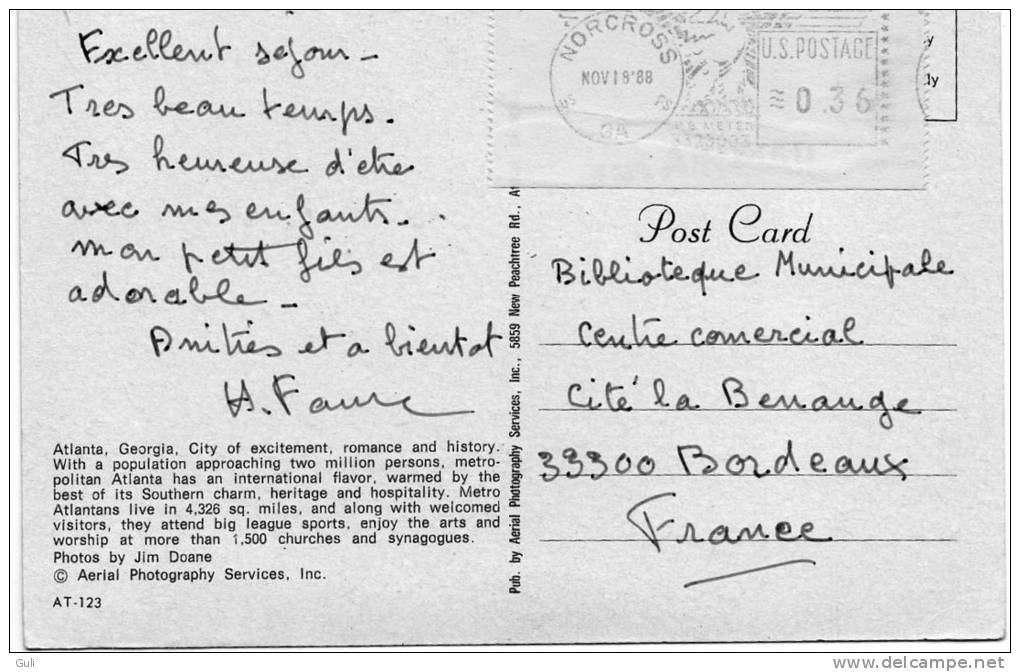 Exellent sejour -
Tres beau temps.
Tres heureuse d'etre
avec mes enfants..
mon petit fils est
adorable -
Amitiés et a bientot
H. Faure
Atlanta, Georgia, City of excitement, romance and history.
With a population approaching two million persons, metro-
politan Atlanta has an international flavor, warmed by the
best of its Southern charm, heritage and hospitality. Metro
Atlantans live in 4,326 sq. miles, and along with welcomed
visitors, they attend big league sports, enjoy the arts and
worship at more than 1,500 churches and synagogues.
Photos by Jim Doane
© Aerial Photography Services, Inc.
AT-123
Pub. by Aerial Photography Services, Inc., 5859 New Peachtree Rd.,
NORCROSS
NOV 18 '88
GA
U.S. POSTAGE
0.36
Post Card
Biblioteque Municipale
Centre comercial
Cité la Benauge
33300 Bordeaux
France
Guli
www.delcampe.net